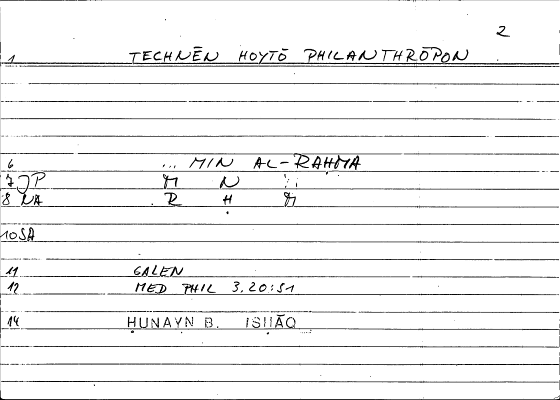 2
1 TECHNĒN HOYTŌ PHILANTHRŌPON
6 ... MIN AL-RAḤMA
7 JP M N
8 NA R Ḥ M
10 SA
11 GALEN
12 MED PHIL 3,20:51
14 ḤUNAYN B. ISḤĀQ